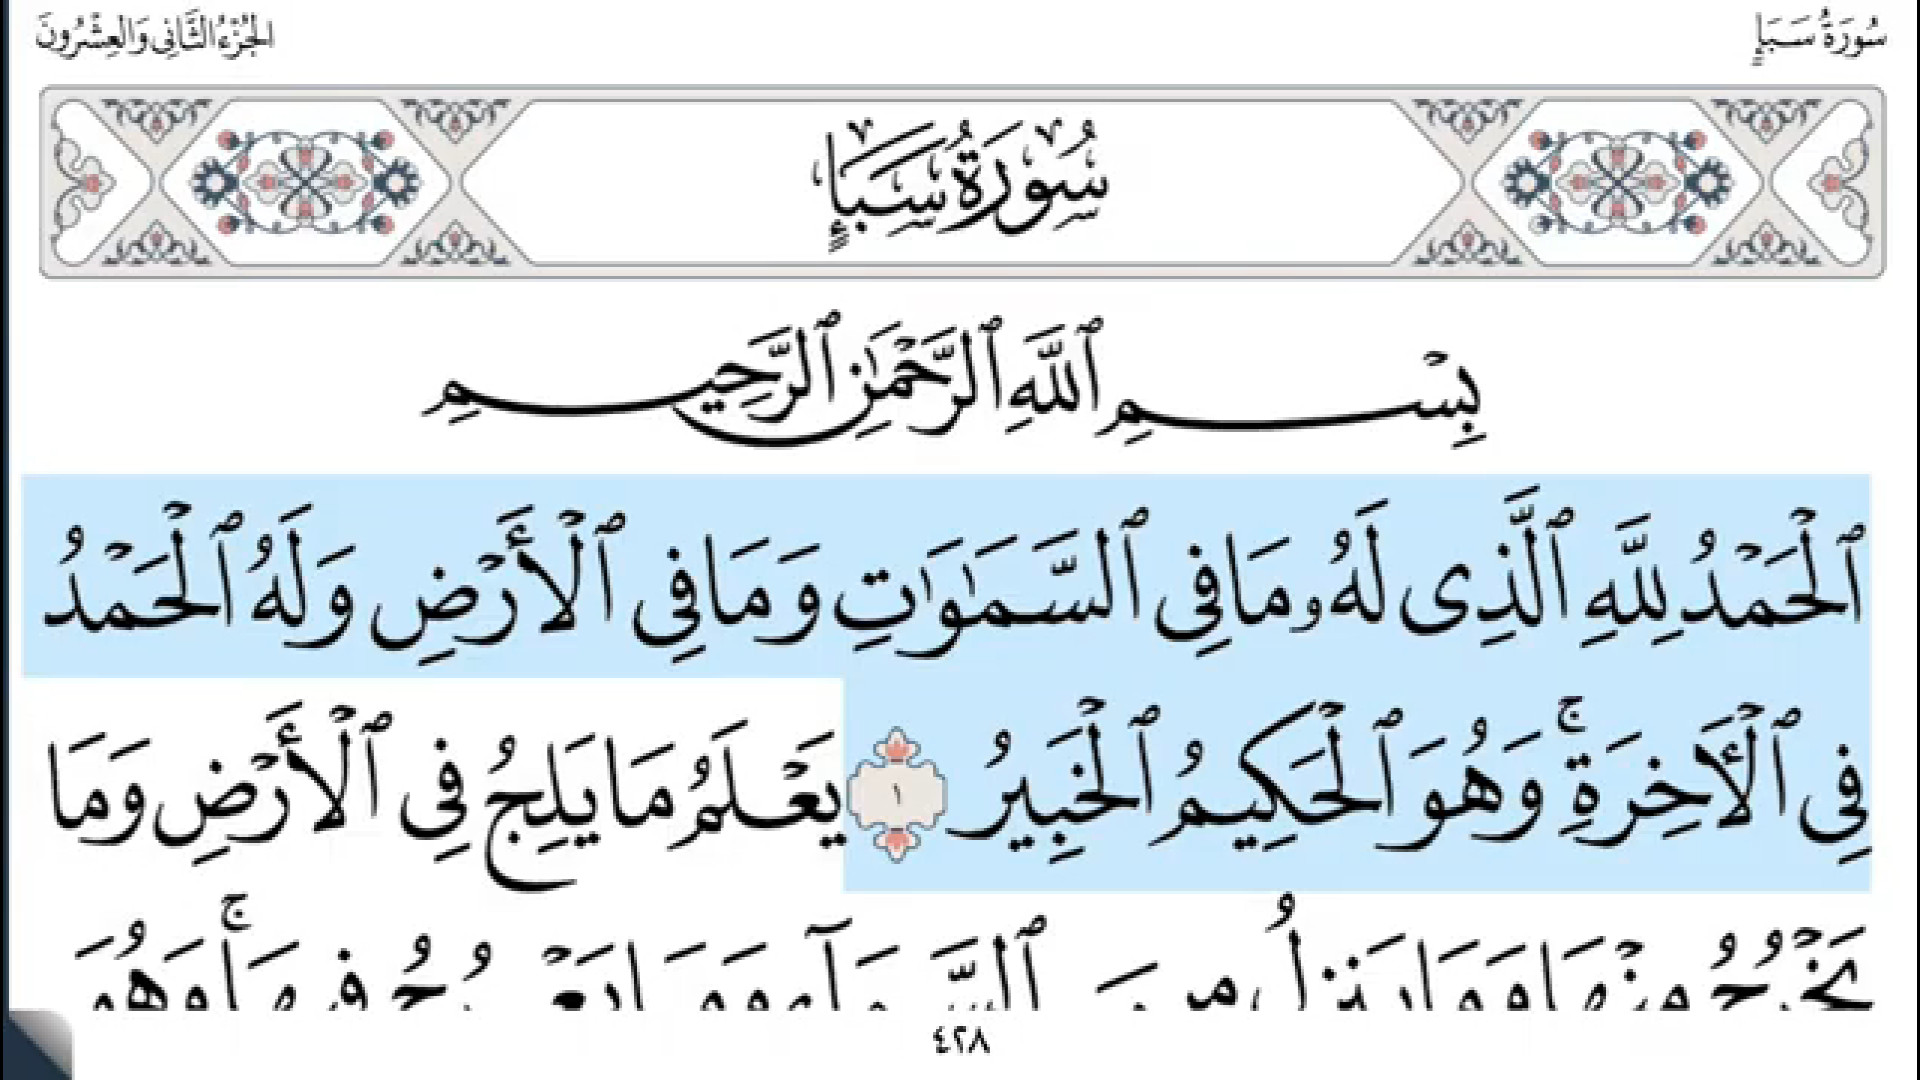 سُورَةُ سَبَإٍ
الجُزْءُ الثَّانِي وَالعِشْرُونَ
سُورَةُ سَبَإٍ
بِسْمِ ٱللَّهِ ٱلرَّحْمَٰنِ ٱلرَّحِيمِ
ٱلْحَمْدُ لِلَّهِ ٱلَّذِى لَهُۥ مَا فِى ٱلسَّمَٰوَٰتِ وَمَا فِى ٱلْأَرْضِ وَلَهُ ٱلْحَمْدُ
فِى ٱلْأَخِرَةِۚ وَهُوَ ٱلْحَكِيمُ ٱلْخَبِيرُ ١ يَعْلَمُ مَا يَلِجُ فِى ٱلْأَرْضِ وَمَا
يَخْرُجُ مِنْهَا وَمَا يَنزِلُ مِنَ ٱلسَّمَآءِ وَمَا يَعْرُجُ فِيهَاۚ وَهُوَ
٤٢٨